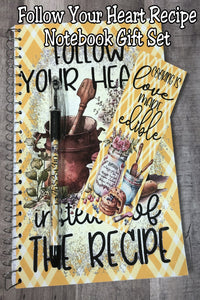 Follow Your Heart Recipe
Notebook Gift Set
FOLLOW
YOUR HEA
instead of
THE RECIPE
BAKING IS
love
MADE
edible